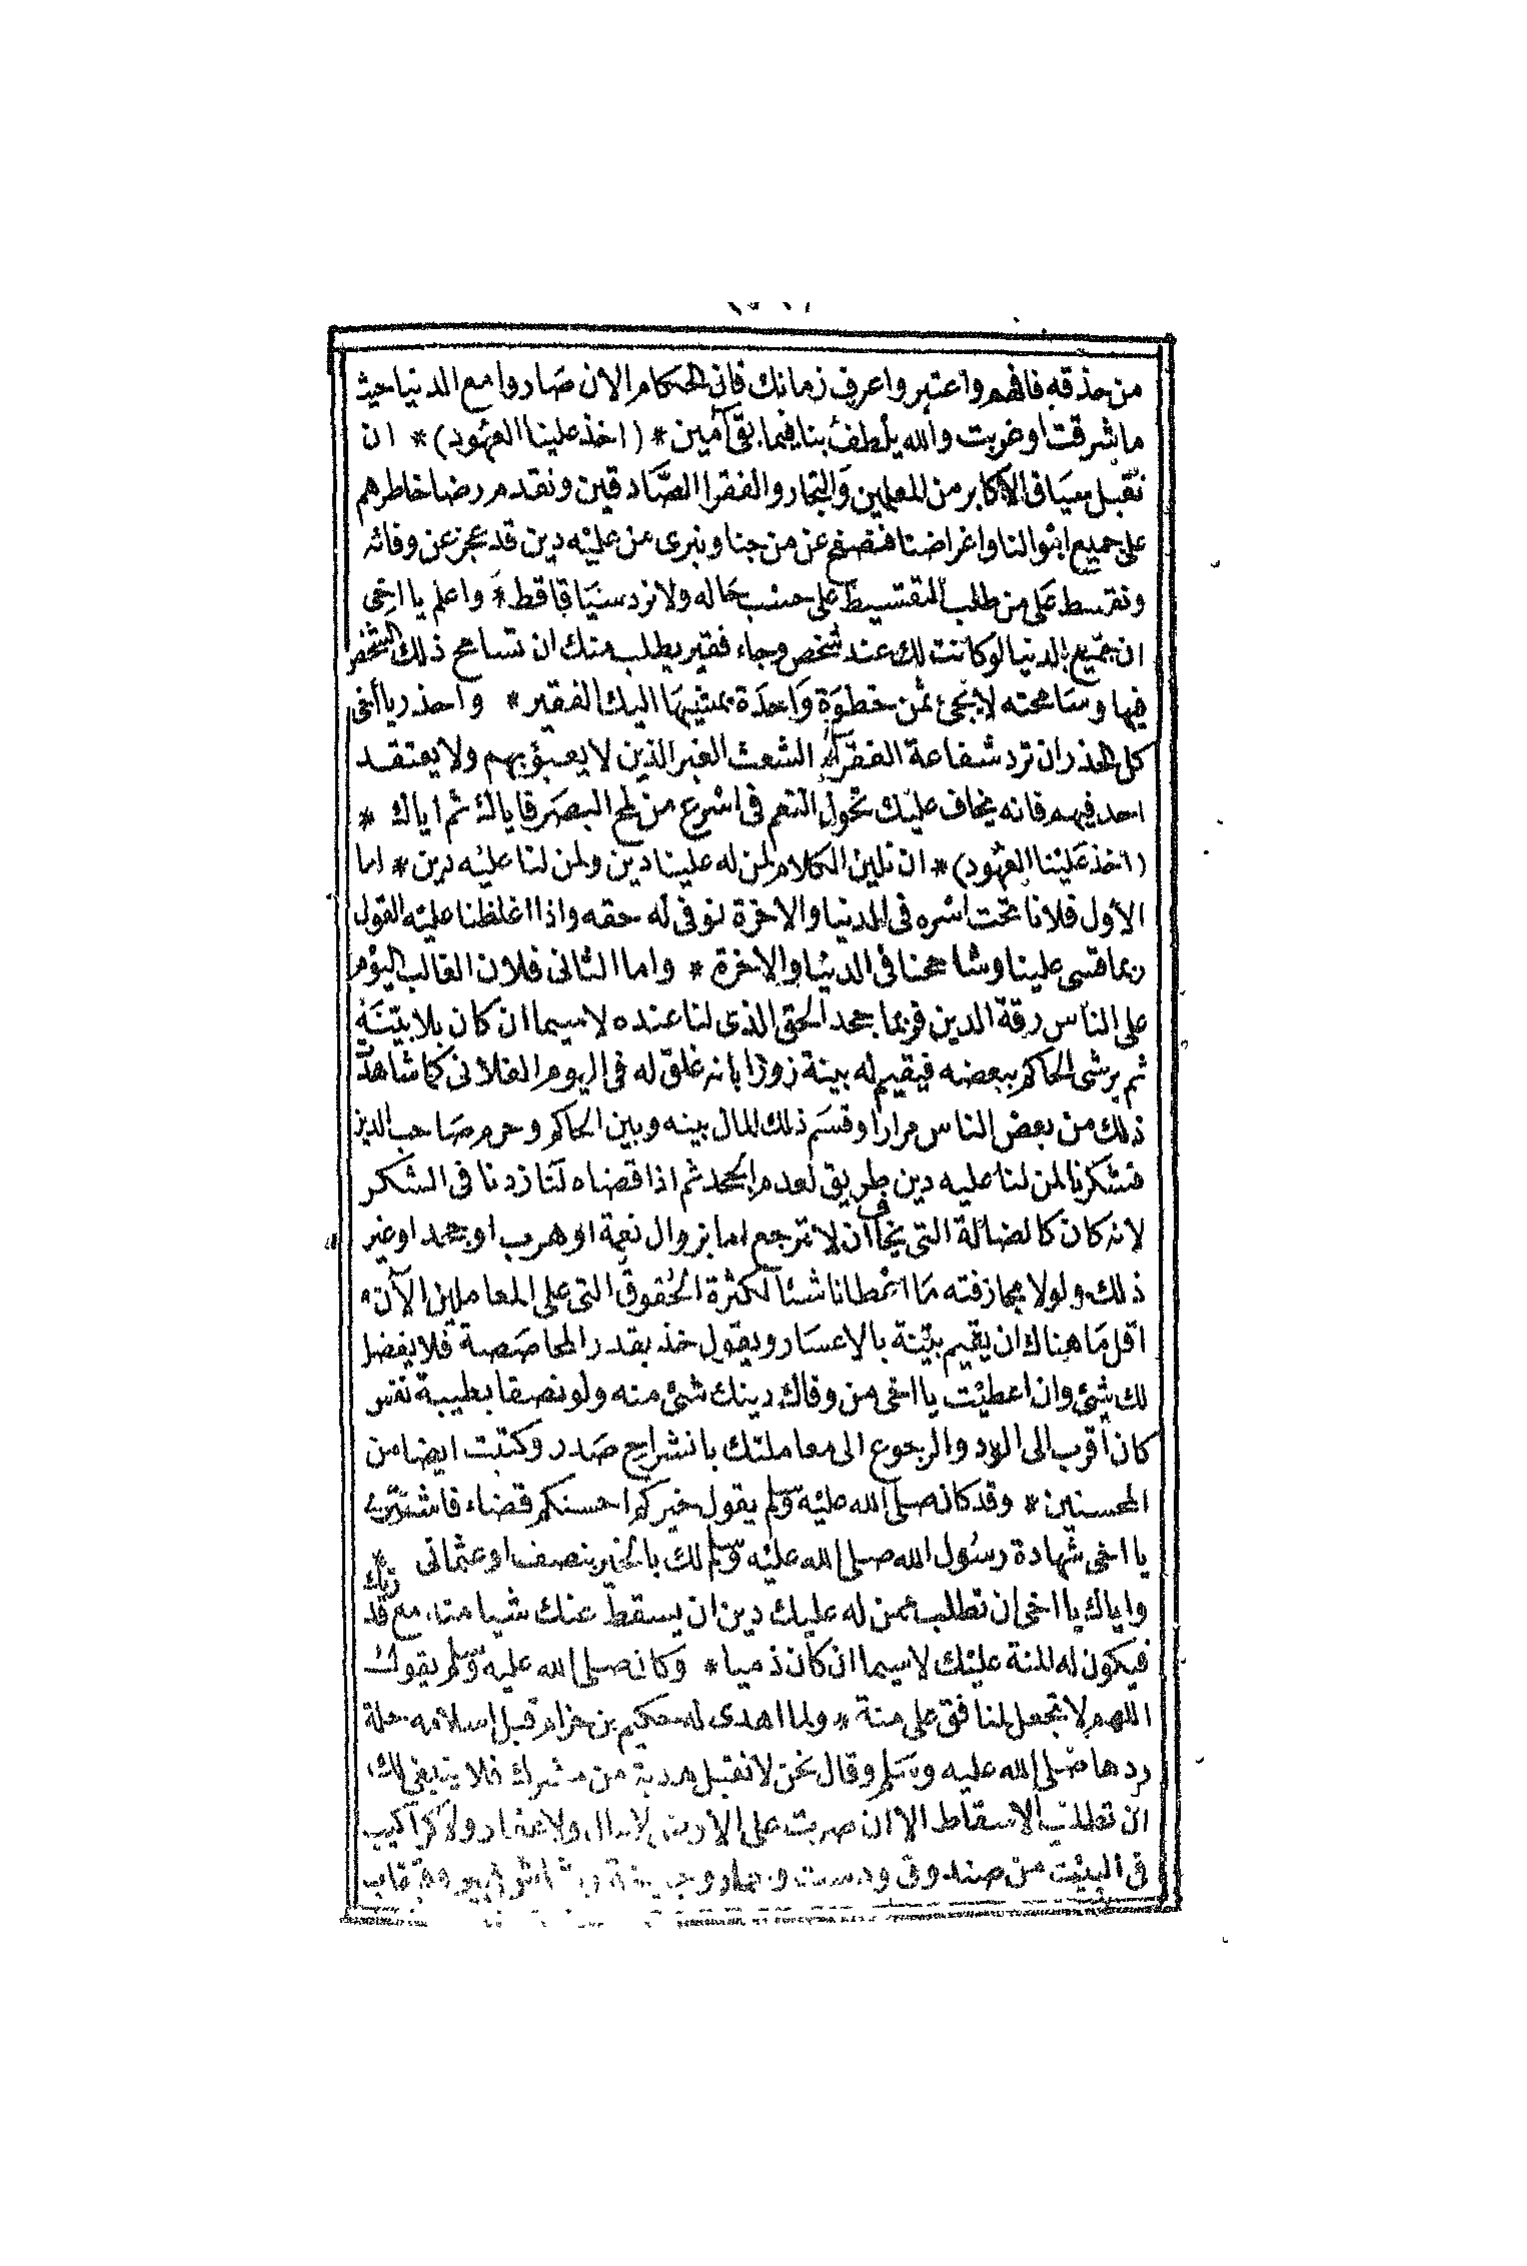 من حذقه فافهم واعتبر واعرف زمانك فان الحكام الان صاروا مع الدنيا حيث
ما شرقت او غربت والله يلطف بنا فيما بقى آمين * (اخذ علينا العهود) * ان
نقبل سياق الاكابر من المعلمين والتجار والفقرا الصادقين ونقدم رضا خاطرهم
على جميع اموالنا واغراضنا فنصفح عن من جنا ونبرى من عليه دين قد عجز عن وفائه
ونقسط على من طلب التقسيط على حسب حاله ولا نرد سياقا قط * واعلم يا اخى
ان جميع الدنيا لو كانت لك عند شخص وجاء فقير يطلب منك ان تسامح ذلك الشخص
فيها وسامحته لا يجئ ثمن خطوة واحدة يمشيها اليك الفقير * واحذر يا اخى
كل الحذر ان ترد شفاعة الفقراء الشعث الغبر الذين لا يعبؤ بهم ولا يعتقد
احد فيهم فانه يخاف عليك تحول النعم فى اسرع من لمح البصر فاياك ثم اياك *
(اخذ علينا العهود) * ان نلين الكلام لمن له علينا دين ولمن لنا عليه دين * اما
الاول فلانا تحت اسره فى الدنيا والاخرة نوفى له حقه واذا اغلظنا عليه القول
ربما قسى علينا وشاححنا فى الدنيا والاخرة * واما الثانى فلان الغالب اليوم
على الناس رقة الدين فربما جحد الحق الذى لنا عنده لا سيما ان كان بلا بينة
ثم يرشى الحاكم ببعضه فيقيم له بينة زورا بانه غلق له فى اليوم الفلانى كما شاهدت
ذلك من بعض الناس مرارا وقسم ذلك المال بينه وبين الحاكم وحرم صاحب الدين
فشكرنا لمن لنا عليه دين طريق لعدم الجحد ثم اذا قضاه لنا زدنا فى الشكر
لانه كان كالضالة التى يخاف ان لا ترجع اما بزوال نعمة او هرب او بجحد او غير
ذلك ولولا مجازفته ما اعطانا شئا لكثرة الحقوق التى على المعاملين الآن *
اقل ما هناك ان يقيم بينة بالاعسار ويقول خذ بقدر المحاصصة فلا يفضل
لك شئ وان اعطيت يا اخى من وفاك دينك شئ منه ولو نصفا بطيبة نفس
كان اقرب الى الود والرجوع الى معاملتك بانشراح صدر وكتبت ايضا من
المحسنين * وقد كان صلى الله عليه وسلم يقول خيركم احسنكم قضاء فاشترى
يا اخى شهادة رسول الله صلى الله عليه وسلم لك بالخير بنصف او عثمانى *
واياك يا اخى ان تطلب ممن له عليك دين ان يسقط عنك شيا منه مع قدرتك
فيكون له المنة عليك لا سيما ان كان ذميا * وكان صلى الله عليه وسلم يقول
اللهم لا تجعل لمنافق على منة * ولما اهدى له حكيم بن حزام قبل اسلامه حلة
ردها صلى الله عليه وسلم وقال نحن لا نقبل هدية من مشرك فلا ينبغى لك
ان تطلب الاسقاط الا ان صرت على الارض لا مال ولا عقار ولا كراكيب
فى البيت من صندوق ودست